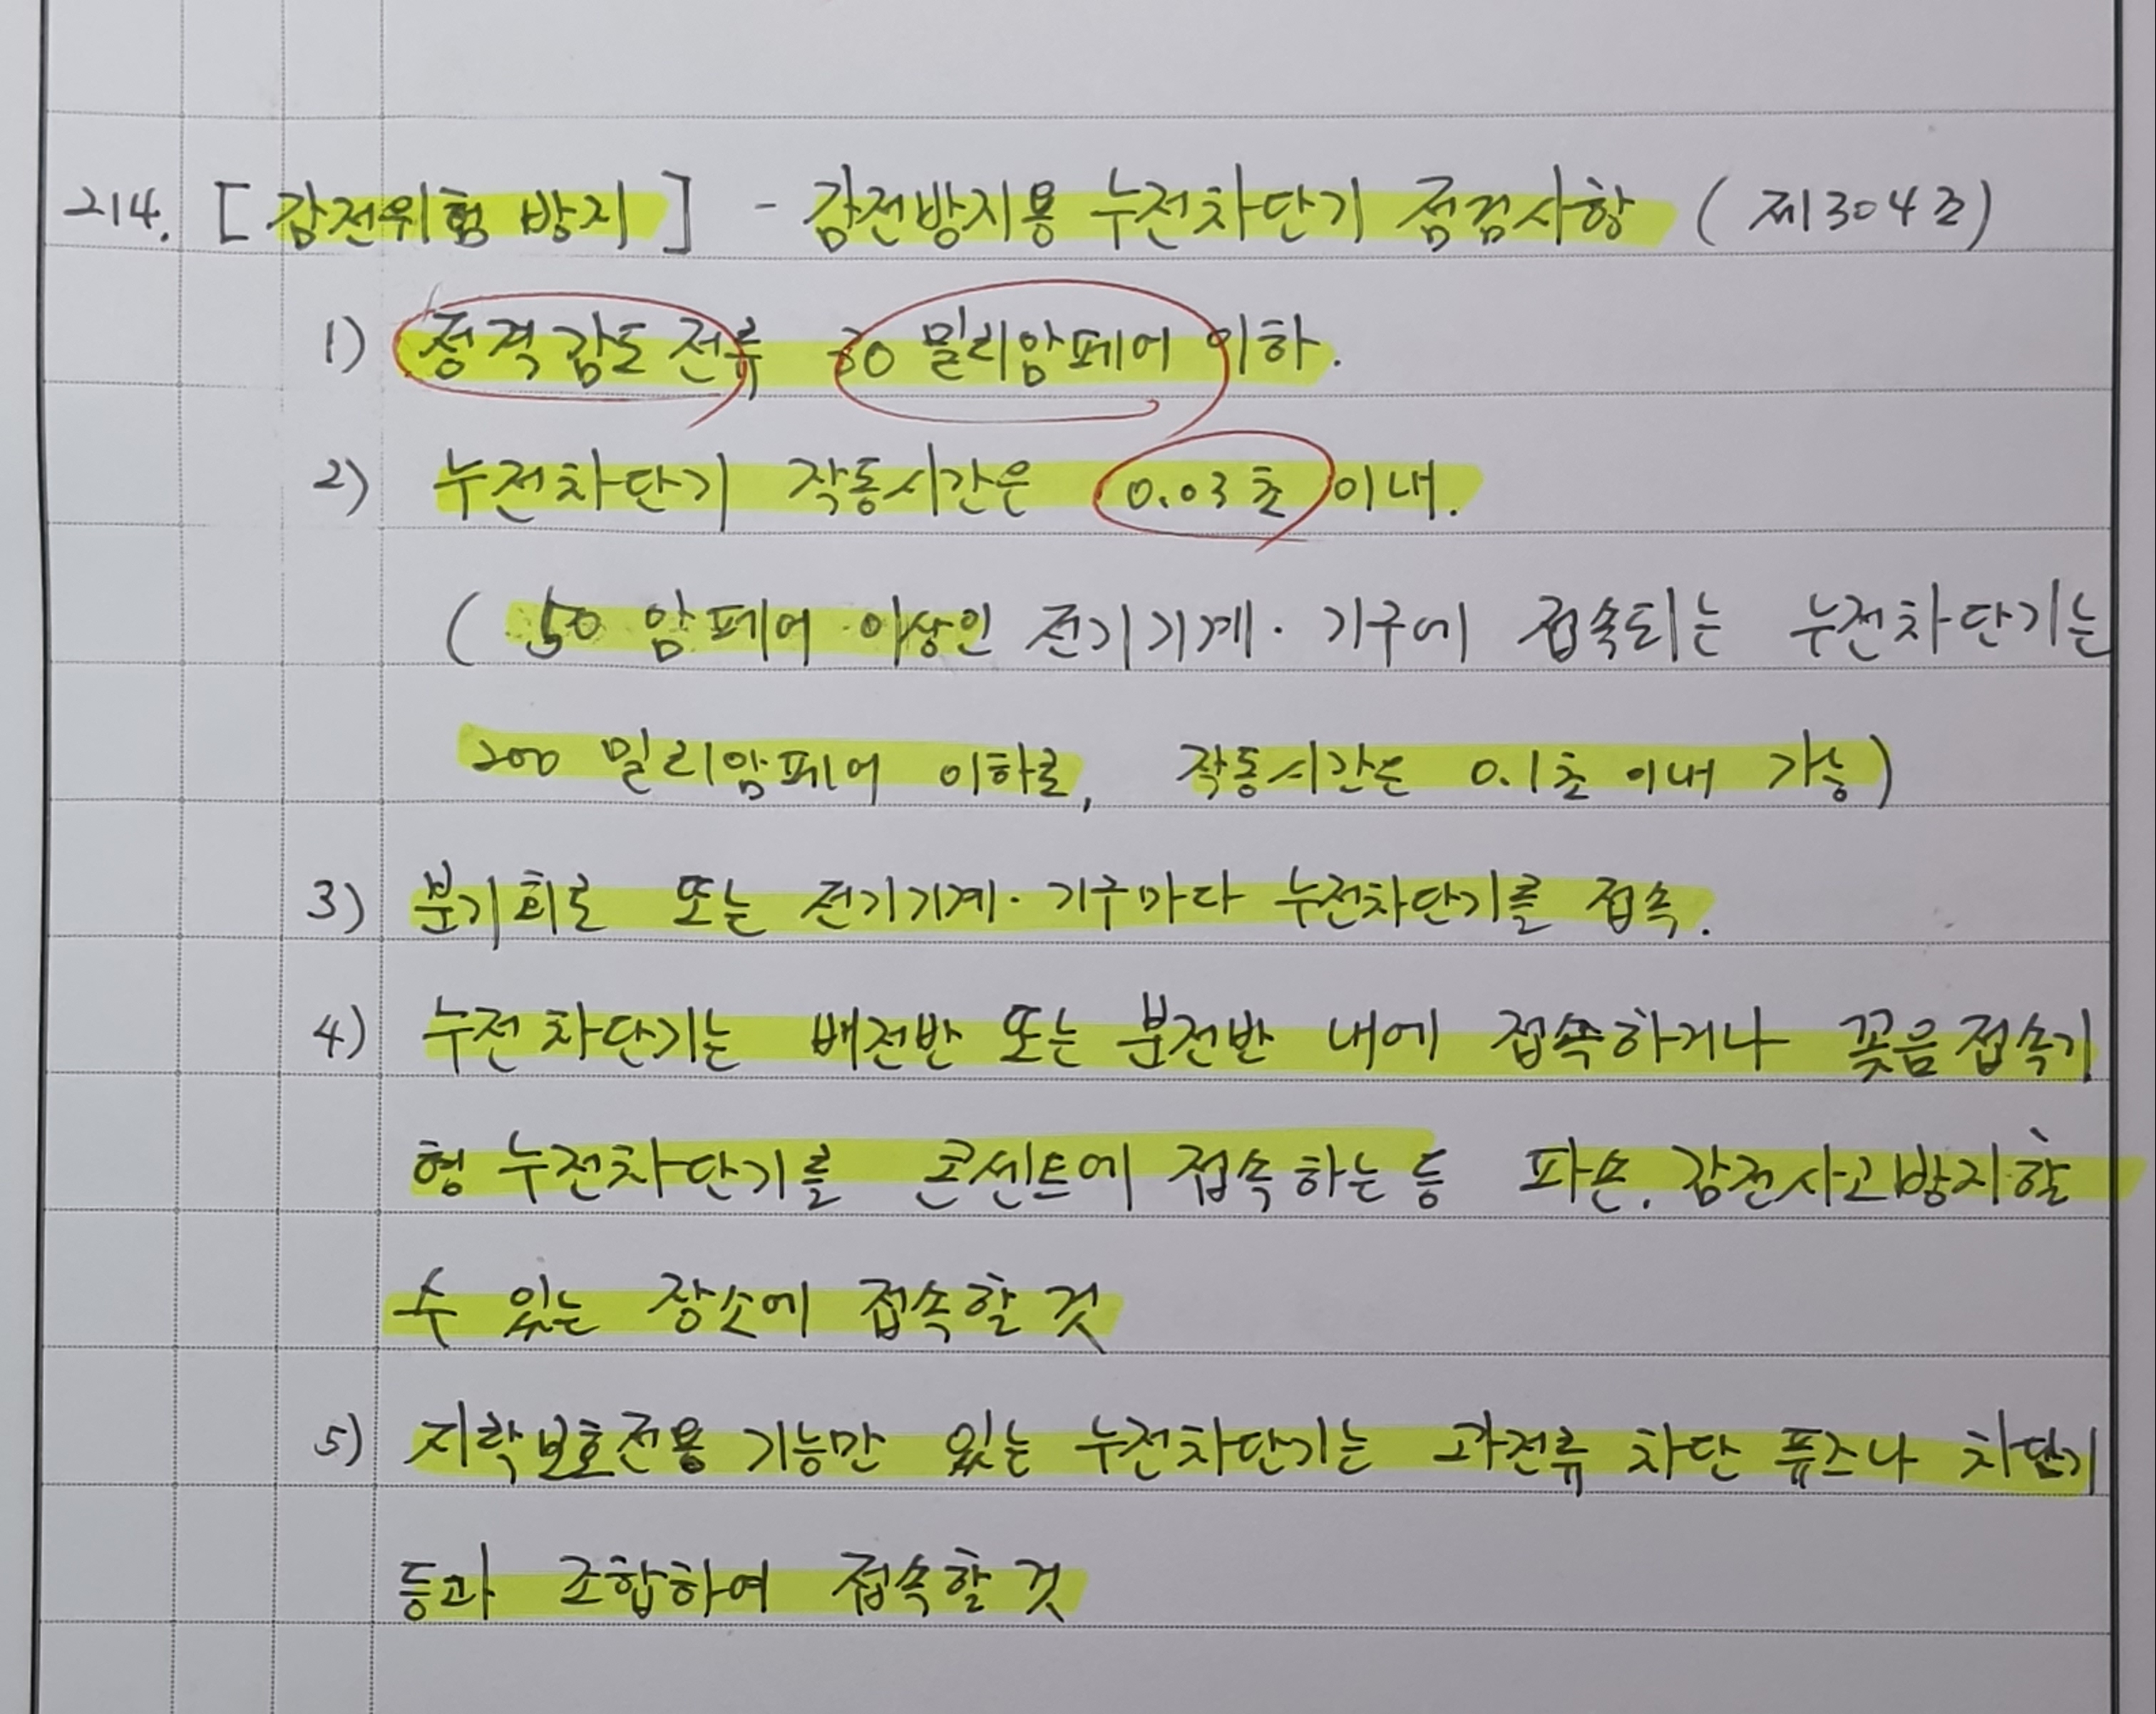 214. [ 감전위험 방지 ] - 감전방지용 누전차단기 점검사항 ( 제304조)
1) 정격감도전류 30 밀리암페어 이하.
2) 누전차단기 작동시간은 0.03초 이내.
( 50 암페어 이상인 전기기계·기구에 접속되는 누전차단기는
200 밀리암페어 이하로, 작동시간은 0.1초 이내 가능)
3) 분기회로 또는 전기기계·기구마다 누전차단기를 접속.
4) 누전차단기는 배전반 또는 분전반 내에 접속하거나 꽂음접속기
형 누전차단기를 콘센트에 접속하는 등 파손, 감전사고방지할
수 있는 장소에 접속할 것
5) 지락보호전용 기능만 있는 누전차단기는 과전류 차단 퓨즈나 차단기
등과 조합하여 접속할 것